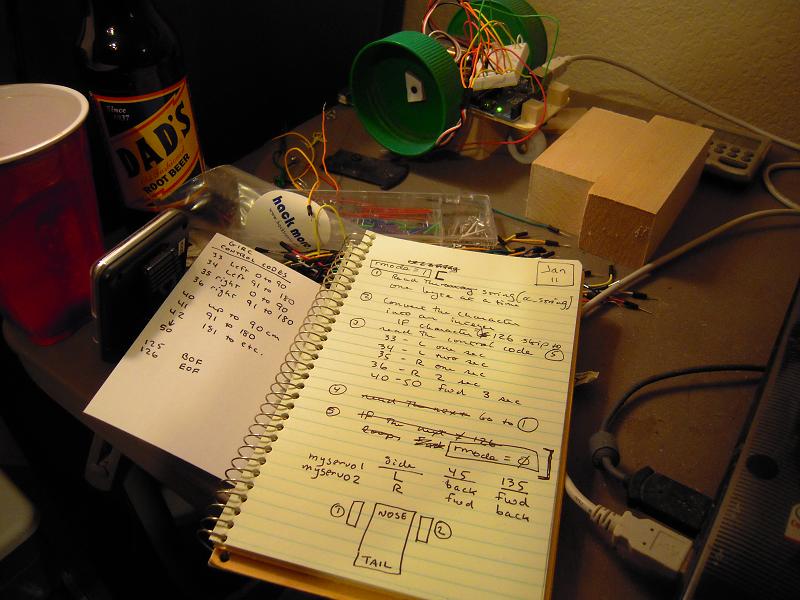 Since
1937
DAD'S
ROOT BEER
hack
GIRC
CONTROL CODES
33 Left 0 to 90
34 Left 91 to 180
35 right 0 to 90
36 right 91 to 180
40 up to 90 cm
41 91 to 180
42 181 to etc.
50
125 BOF
126 EOF
Jan
11
rmode = 1
① Read string (a_string)
one byte at a time
② Convert the character
into an integer
If character 126 skip to ⑤
③ read the control code
33 - L one sec
34 - L two sec
35 - R one sec
36 - R 2 sec
40-50 fwd 3 sec
④ read the next Go to ①
⑤ If the next ≠ 126
loops End rmode = 0
side 45 135
myservo1 L back fwd
myservo2 R fwd back
① NOSE ②
TAIL